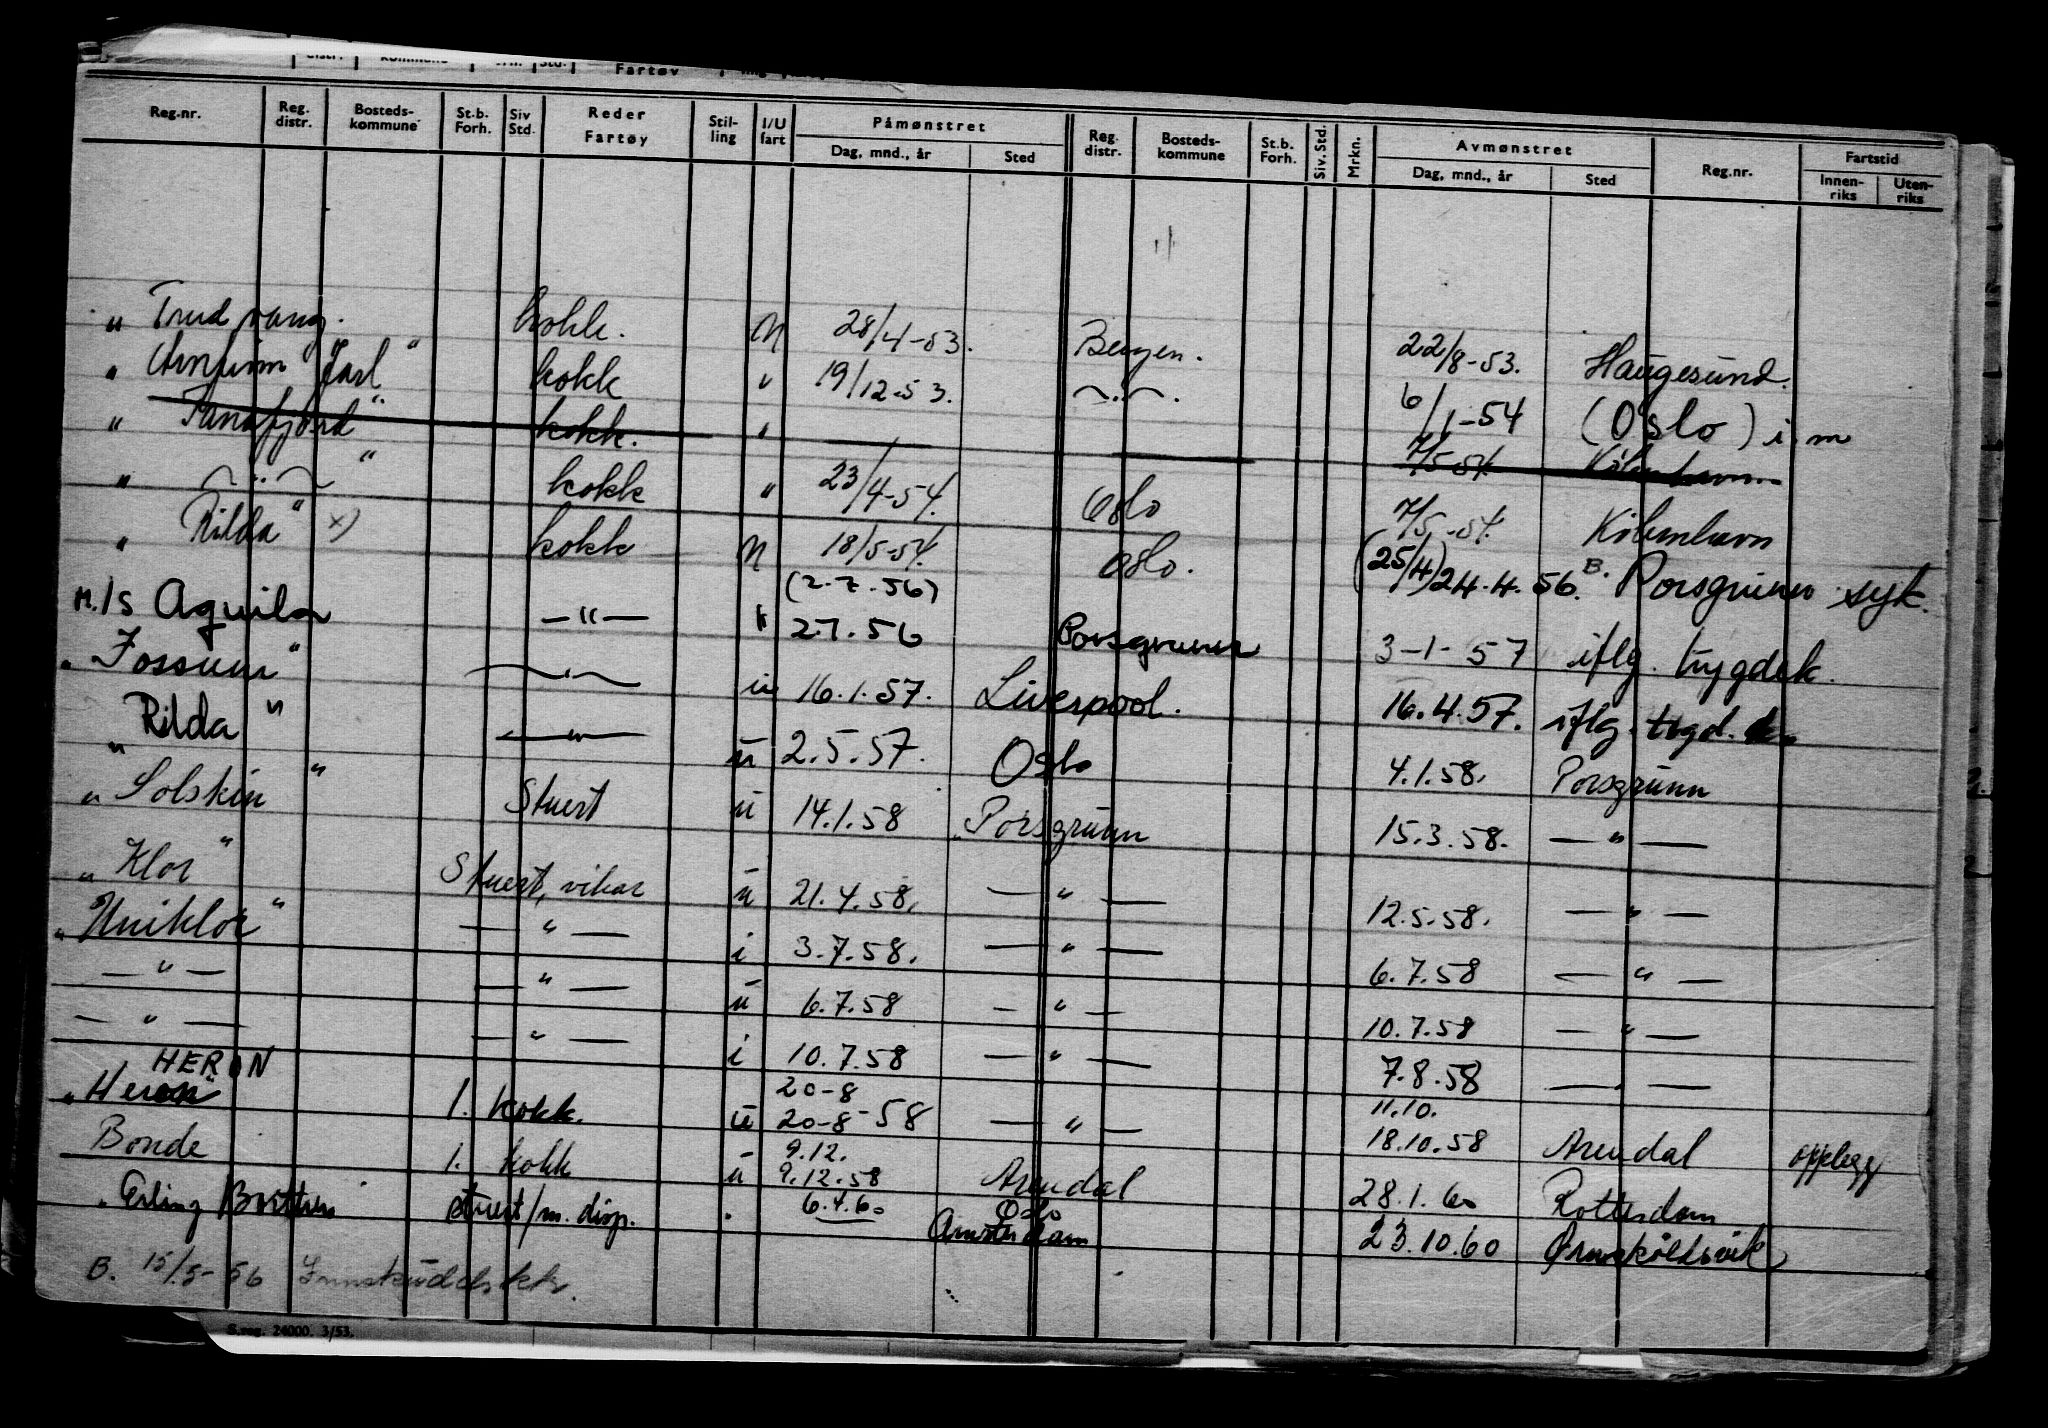 Fartøy
Reg.nr. Reg. distr. Bosteds-kommune St.b. Forh. Siv Std. Reder Fartøy Stil-ling I/U fart Påmønstret Dag, mnd., år Sted Reg. distr. Bosteds-kommune St.b. Forh. Siv. Std. Mrkn. Avmønstret Dag, mnd., år Sted Reg.nr. Fartstid Innen-riks Uten-riks
" Trudvang. kokk. N 28/4-53. Bergen. 22/8-53. Haugesund.
" Jarl" kokk " 19/12-53. — " —. 6/1-54 (Oslo) i. m
" Tanafjord" kokk. " 7/5-54. København
" — " — " kokk " 23/4-54. Oslo 7/5-54. København
" Rilda" x) kokk N 18/5-54. Oslo. (25/4) 24.4.56. B. Porsgrunn syk.
(2.7.56)
M/S Aquila — " — " 2.7.56 Porsgrunn 3-1-57 iflg. trygdek.
" Fossum" — " — u 16.1.57. Liverpool. 16.4.57. iflg. tygd.
" Rilda" — " — u 2.5.57. Oslo 4.1.58. Porsgrunn
" Solskin" Stuert u 14.1.58 Porsgrunn 15.3.58. — " —
" Klor" Stuert, vikar u 21.4.58. — " — 12.5.58. — " —
" Uniklor" — " — i 3.7.58. — " — 6.7.58 — " —
— " — — " — u 6.7.58 — " — 10.7.58 — " —
— " — — " — i 10.7.58 — " — 7.8.58 — —
HERON 20-8 11.10.
" Heron" 1. kokk. u 20-8-58 — " — 18.10.58 Arendal opplegg
9.12.
Bonde 1. kokk u 9.12.58 Arendal 28.1.60 Rotterdam
Oslo
" Erling Borthen stuert/m. disp. " 6.4.60 Amsterdam 23.10.60 Ørnskøldsvik
B. 15/5-56 Innskuddskk.
S.reg. 24000. 3/53.